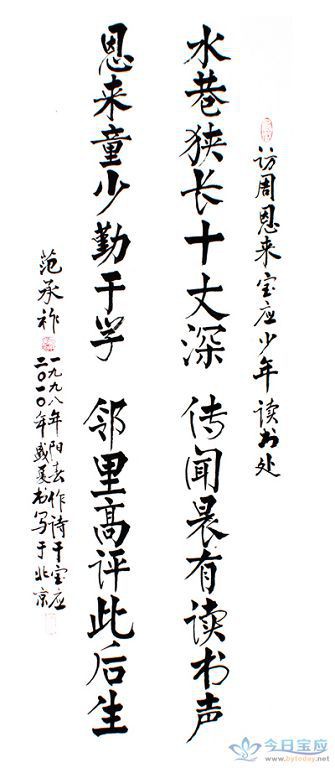 访周恩来宝应少年读书处
水巷狭长十丈深 传闻晨有读书声
恩来童少勤于学 邻里高评此后生
范承祚
一九九八年阳春作诗于宝应
二〇一〇年盛夏书写于北京
今日宝应
www.bytoday.net